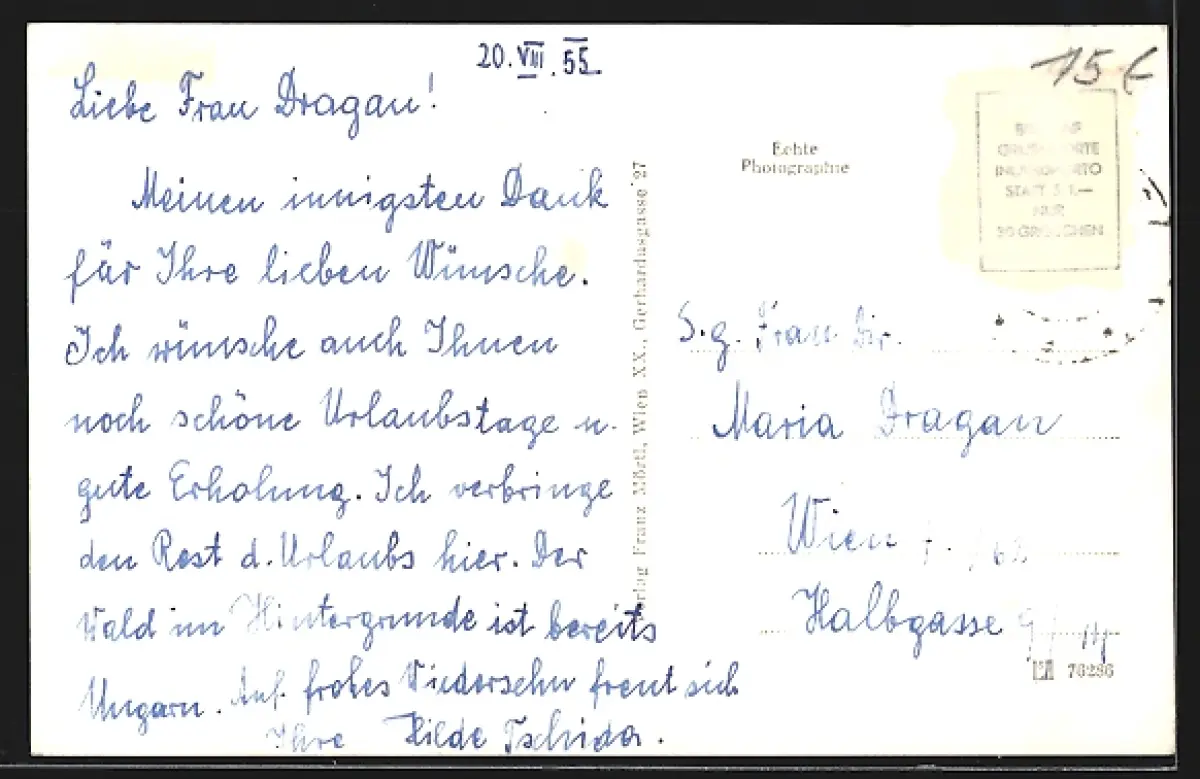 20.VIII.55.
Liebe Frau Dragan!
Meinen innigsten Dank
für Ihre lieben Wünsche.
Ich wünsche auch Ihnen
noch schöne Urlaubstage u.
gute Erholung. Ich verbringe
den Rest d. Urlaubs hier. Der
Wald im Hintergrunde ist bereits
Ungarn. Auf frohes Wiedersehn freut sich
Ihre Hilde Tschida.
Franz Mörtl, Wien XX., Gerhardusgasse 27
Echte
Photographie
15€
STATT S 1.—
NUR
30 GROSCHEN
S.g. Frau Dir.
Maria Dragan
Wien
Halbgasse 9/III
76286